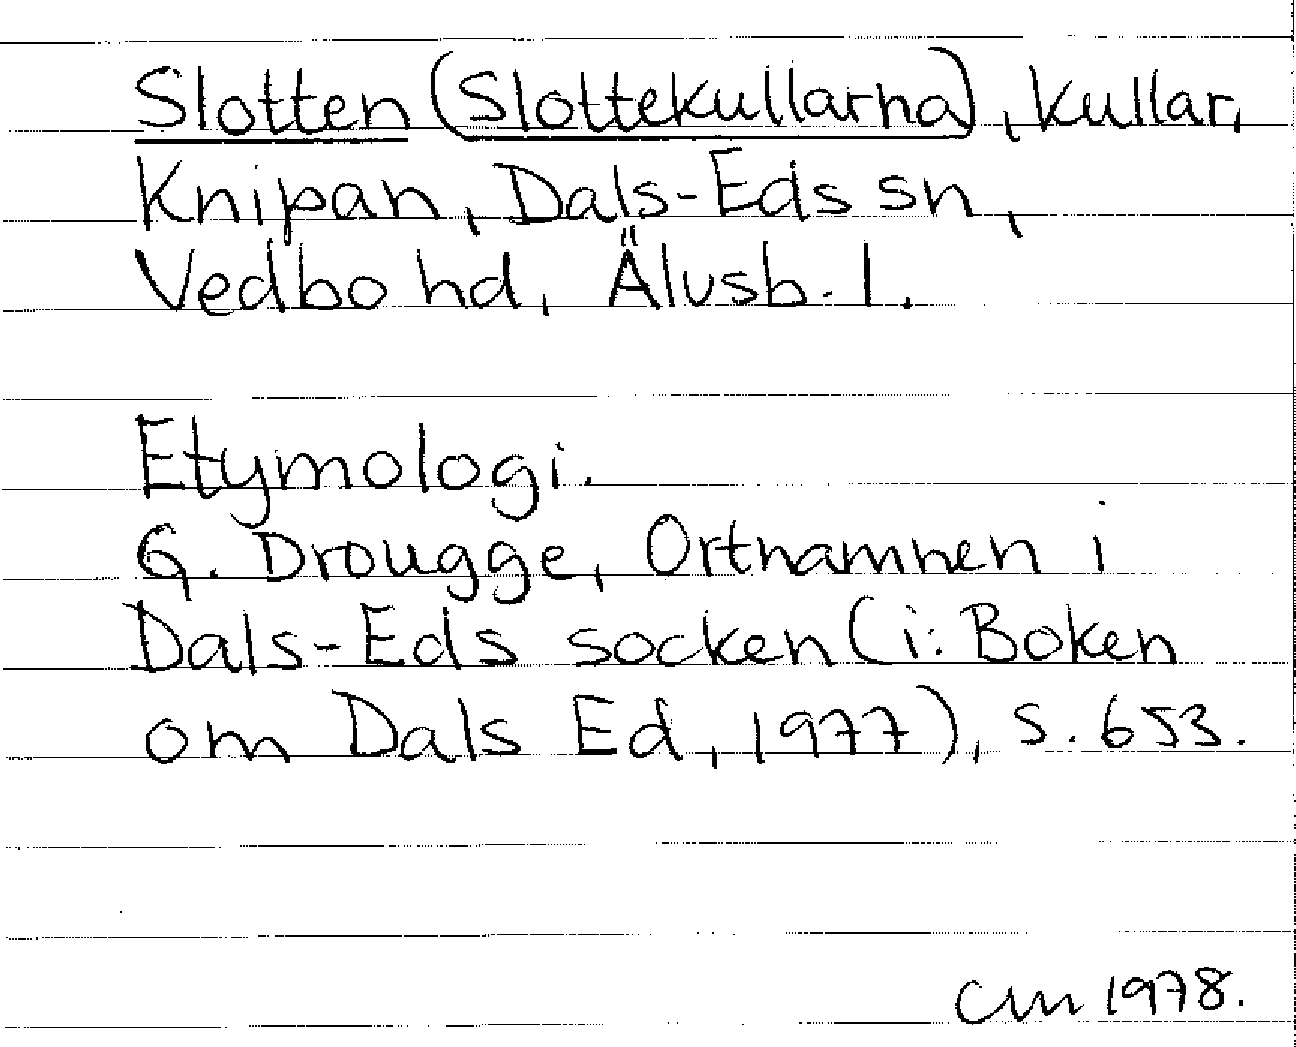 Slotten (Slottekullarna), kullar,
Knipan, Dals-Eds sn,
Vedbo hd, Älvsb. l.
Etymologi.
G. Drougge, Ortnamnen i
Dals-Eds socken (i: Boken
om Dals Ed, 1977), s. 653.
CM 1978.